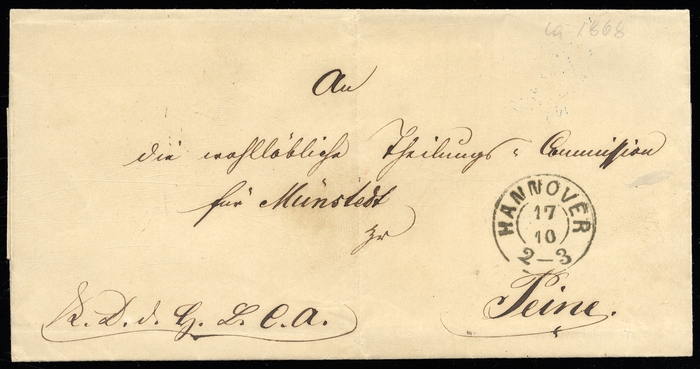 ca 1868
An
die wohllöbliche Theilungs-Commission
für Münstedt
zu
HANNOVER
17
10
2-3
Peine.
K. D. d. H. L. C. A.